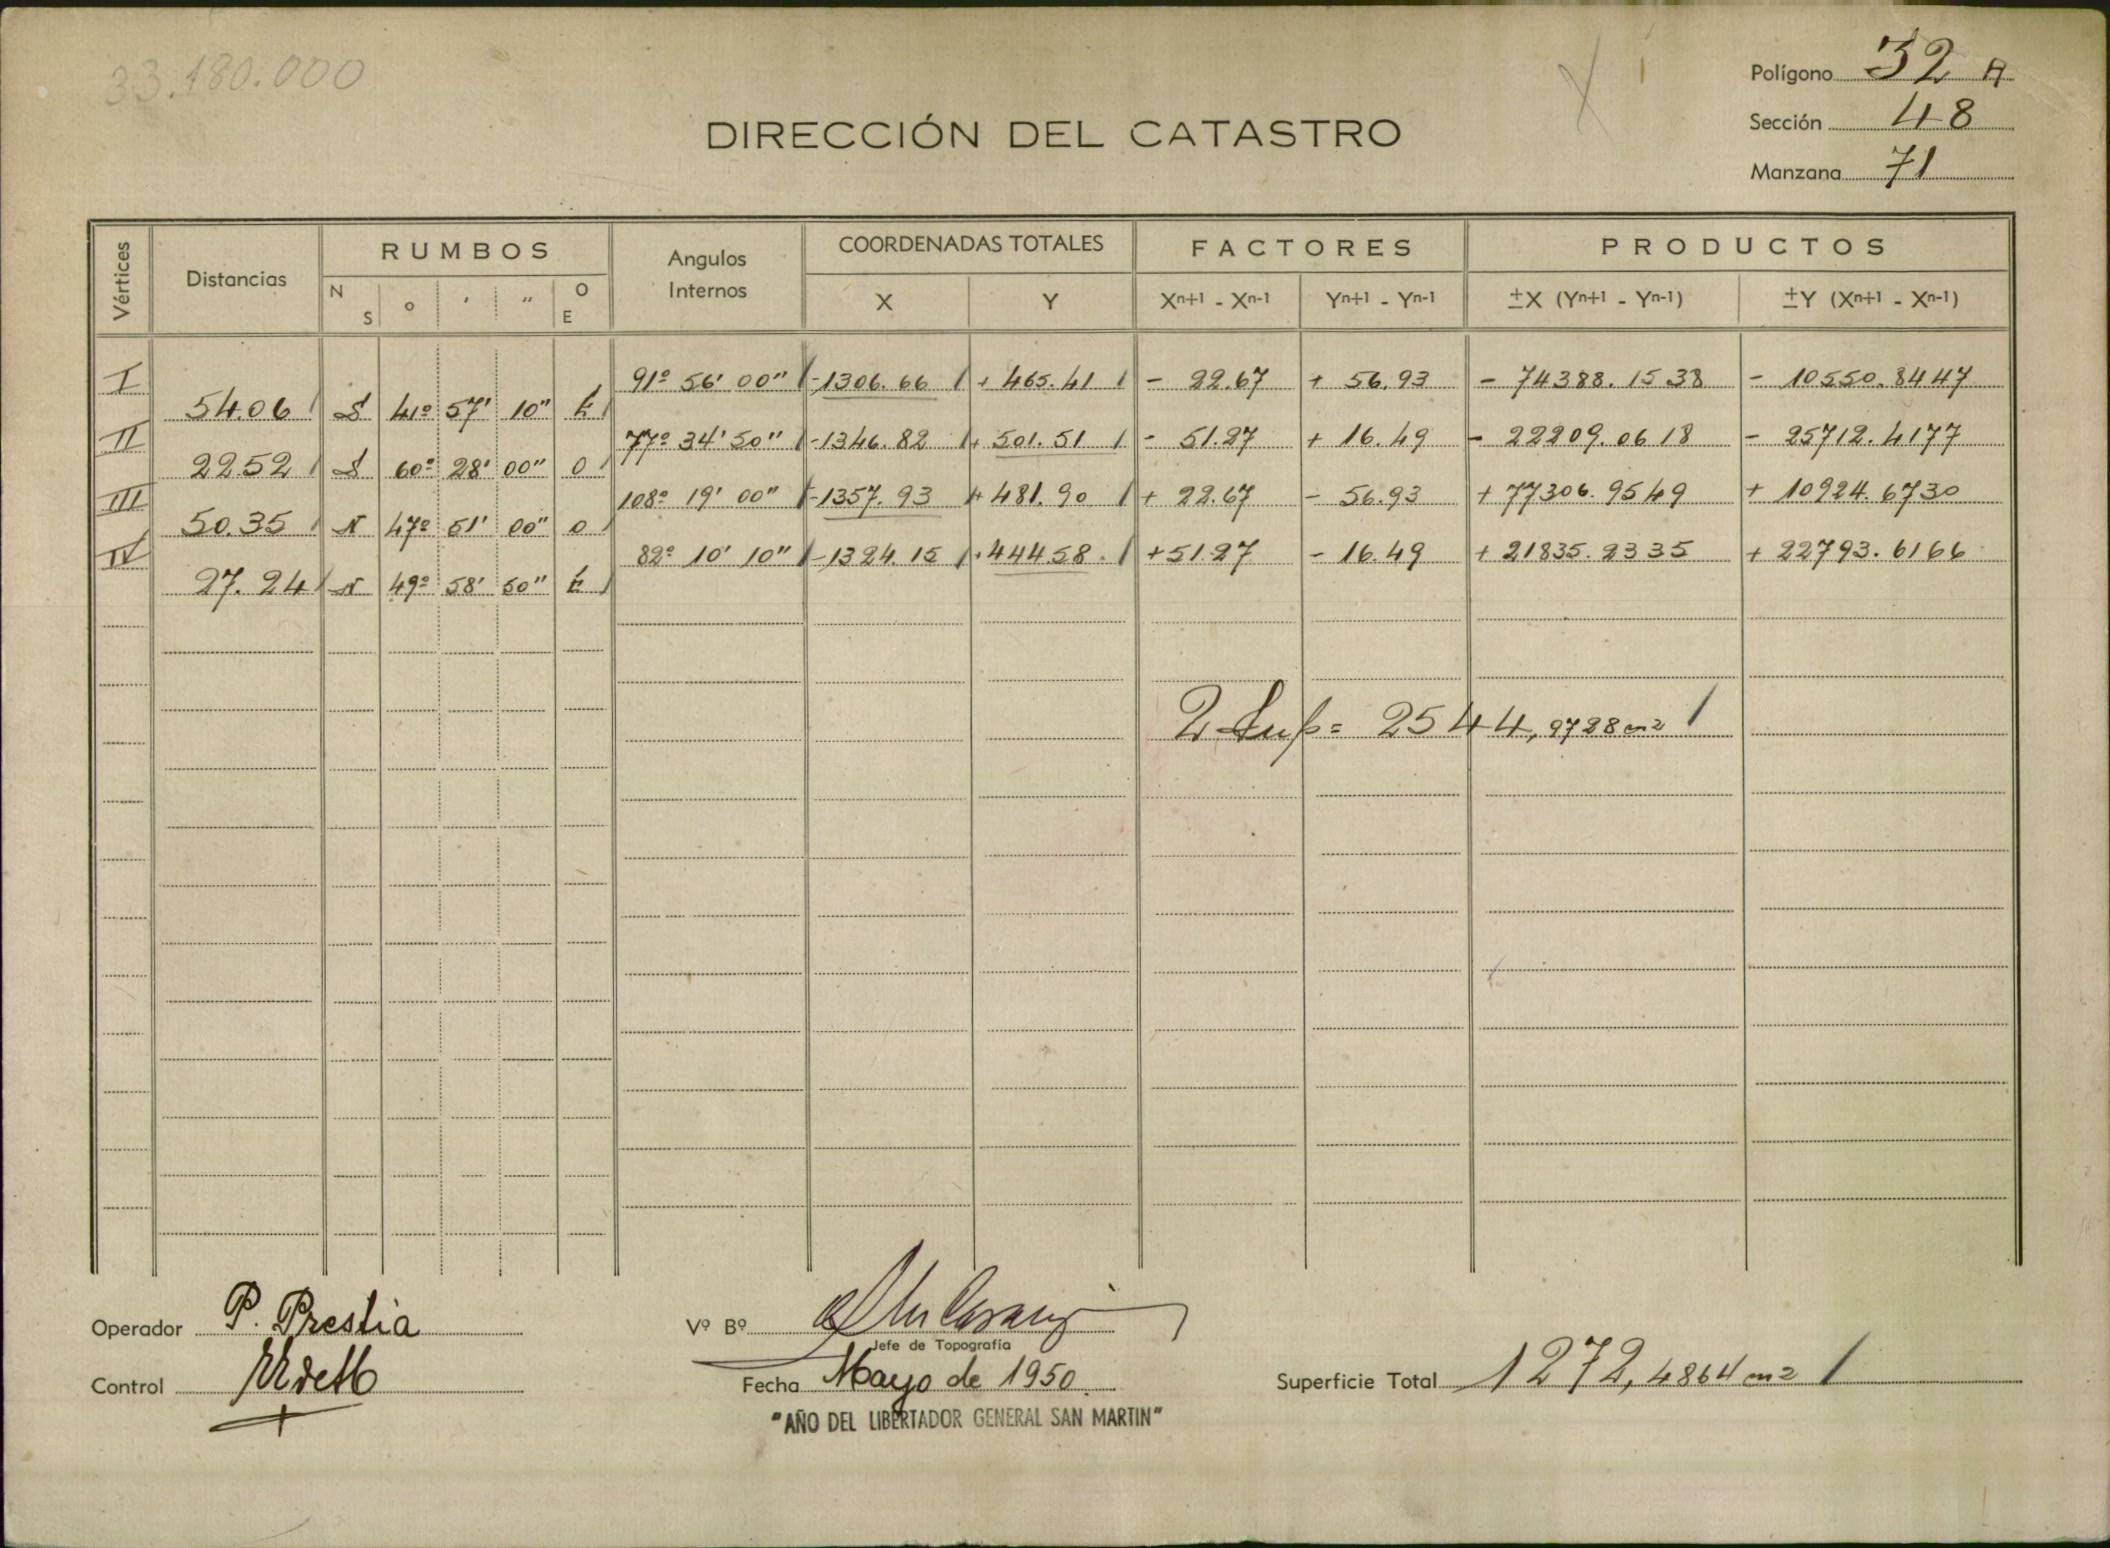 33.180.000
Polígono 32 A
Sección 48
Manzana 71
DIRECCIÓN DEL CATASTRO
Vértices Distancias RUMBOS Angulos Internos COORDENADAS TOTALES FACTORES PRODUCTOS
N S o ′ ″ O E X Y Xn+1 - Xn-1 Yn+1 - Yn-1 ±X (Yn+1 - Yn-1) ±Y (Xn+1 - Xn-1)
I 91º 56' 00" -1306.66 + 465.41 - 22.67 + 56.93 - 74388.1538 - 10550.8447
54.06 S 41º 57' 10" E
II 77º 34' 50" -1346.82 + 501.51 - 51.27 + 16.49 - 22209.0618 - 25712.4177
22.52 S 60º 28' 00" O
III 108º 19' 00" -1357.93 + 481.90 + 22.67 - 56.93 + 77306.9549 + 10924.6730
50.35 N 47º 51' 00" O
IV 82º 10' 10" -1324.15 + 444.58 +51.27 - 16.49 + 21835.2335 + 22793.6166
27.24 N 49º 58' 50" E
2 Sup= 2544,9728 m2
Operador P. Prestia
Vº Bº
Jefe de Topografía
Control
Fecha Mayo de 1950
Superficie Total 1272,4864 m2
"AÑO DEL LIBERTADOR GENERAL SAN MARTIN"